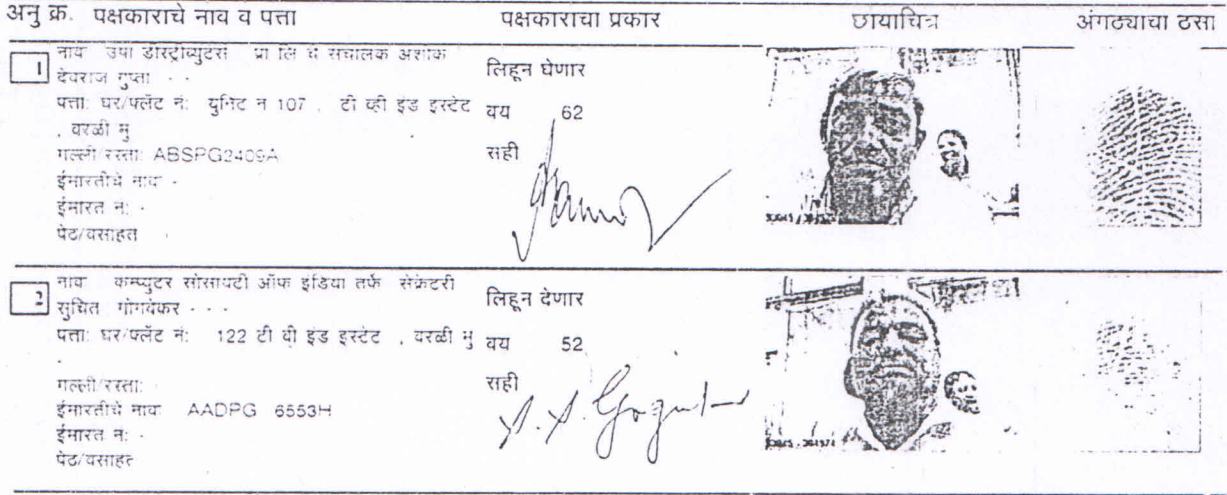 अनु क्र. पक्षकाराचे नाव व पत्ता पक्षकाराचा प्रकार छायाचित्र अंगठ्याचा ठसा
1 नाव उषा डीस्ट्रीब्युटर्स प्रा लि चे संचालक अशोक
देवराज गुप्ता - -
पत्ता: घर/फ्लॅट नं: युनिट न 107 , टी व्ही इंड इस्टेट
, वरळी मु
गल्ली/रस्ता: ABSPG2409A
ईमारतीचे नाव -
ईमारत नं: -
पेठ/वसाहत
लिहून घेणार
वय 62
सही
2 नाव कम्प्युटर सोसायटी ऑफ इंडिया तर्फे सेक्रेटरी
सुचित गोगवेकर - - -
पत्ता: घर/फ्लॅट नं: 122 टी वी इंड इस्टेट , वरळी मु
-
गल्ली/रस्ता:
ईमारतीचे नाव AADPG 6553H
ईमारत नं: -
पेठ/वसाहत
लिहून देणार
वय 52
सही